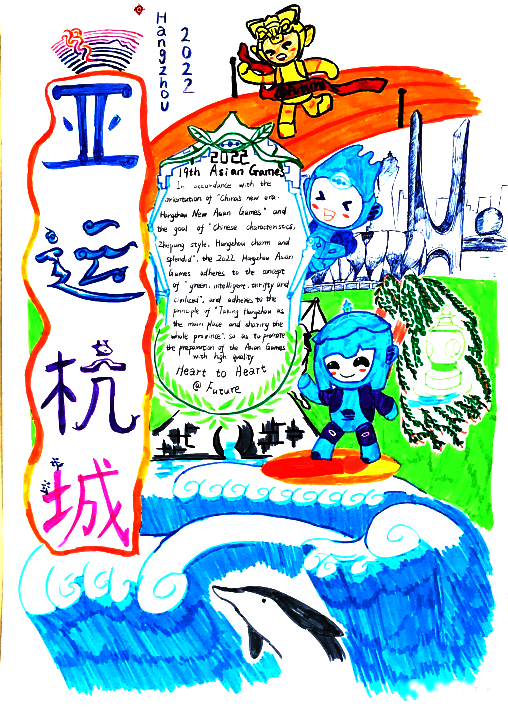 亚运杭城
Hangzhou
2022
2022
19th Asian Games
In accordance with the
orientation of "China's new era ·
Hangzhou New Asian Games" and
the goal of "Chinese characteristics,
Zhejiang style, Hangzhou charm and
splendid", the 2022 Hangzhou Asian
Games adheres to the concept
of "green, intelligent, thrifty and
civilized", and adheres to the
principle of "Taking Hangzhou as
the main place and sharing the
whole province", so as to promote
the preparation of the Asian Games
with high quality
Heart to Heart
@ Future